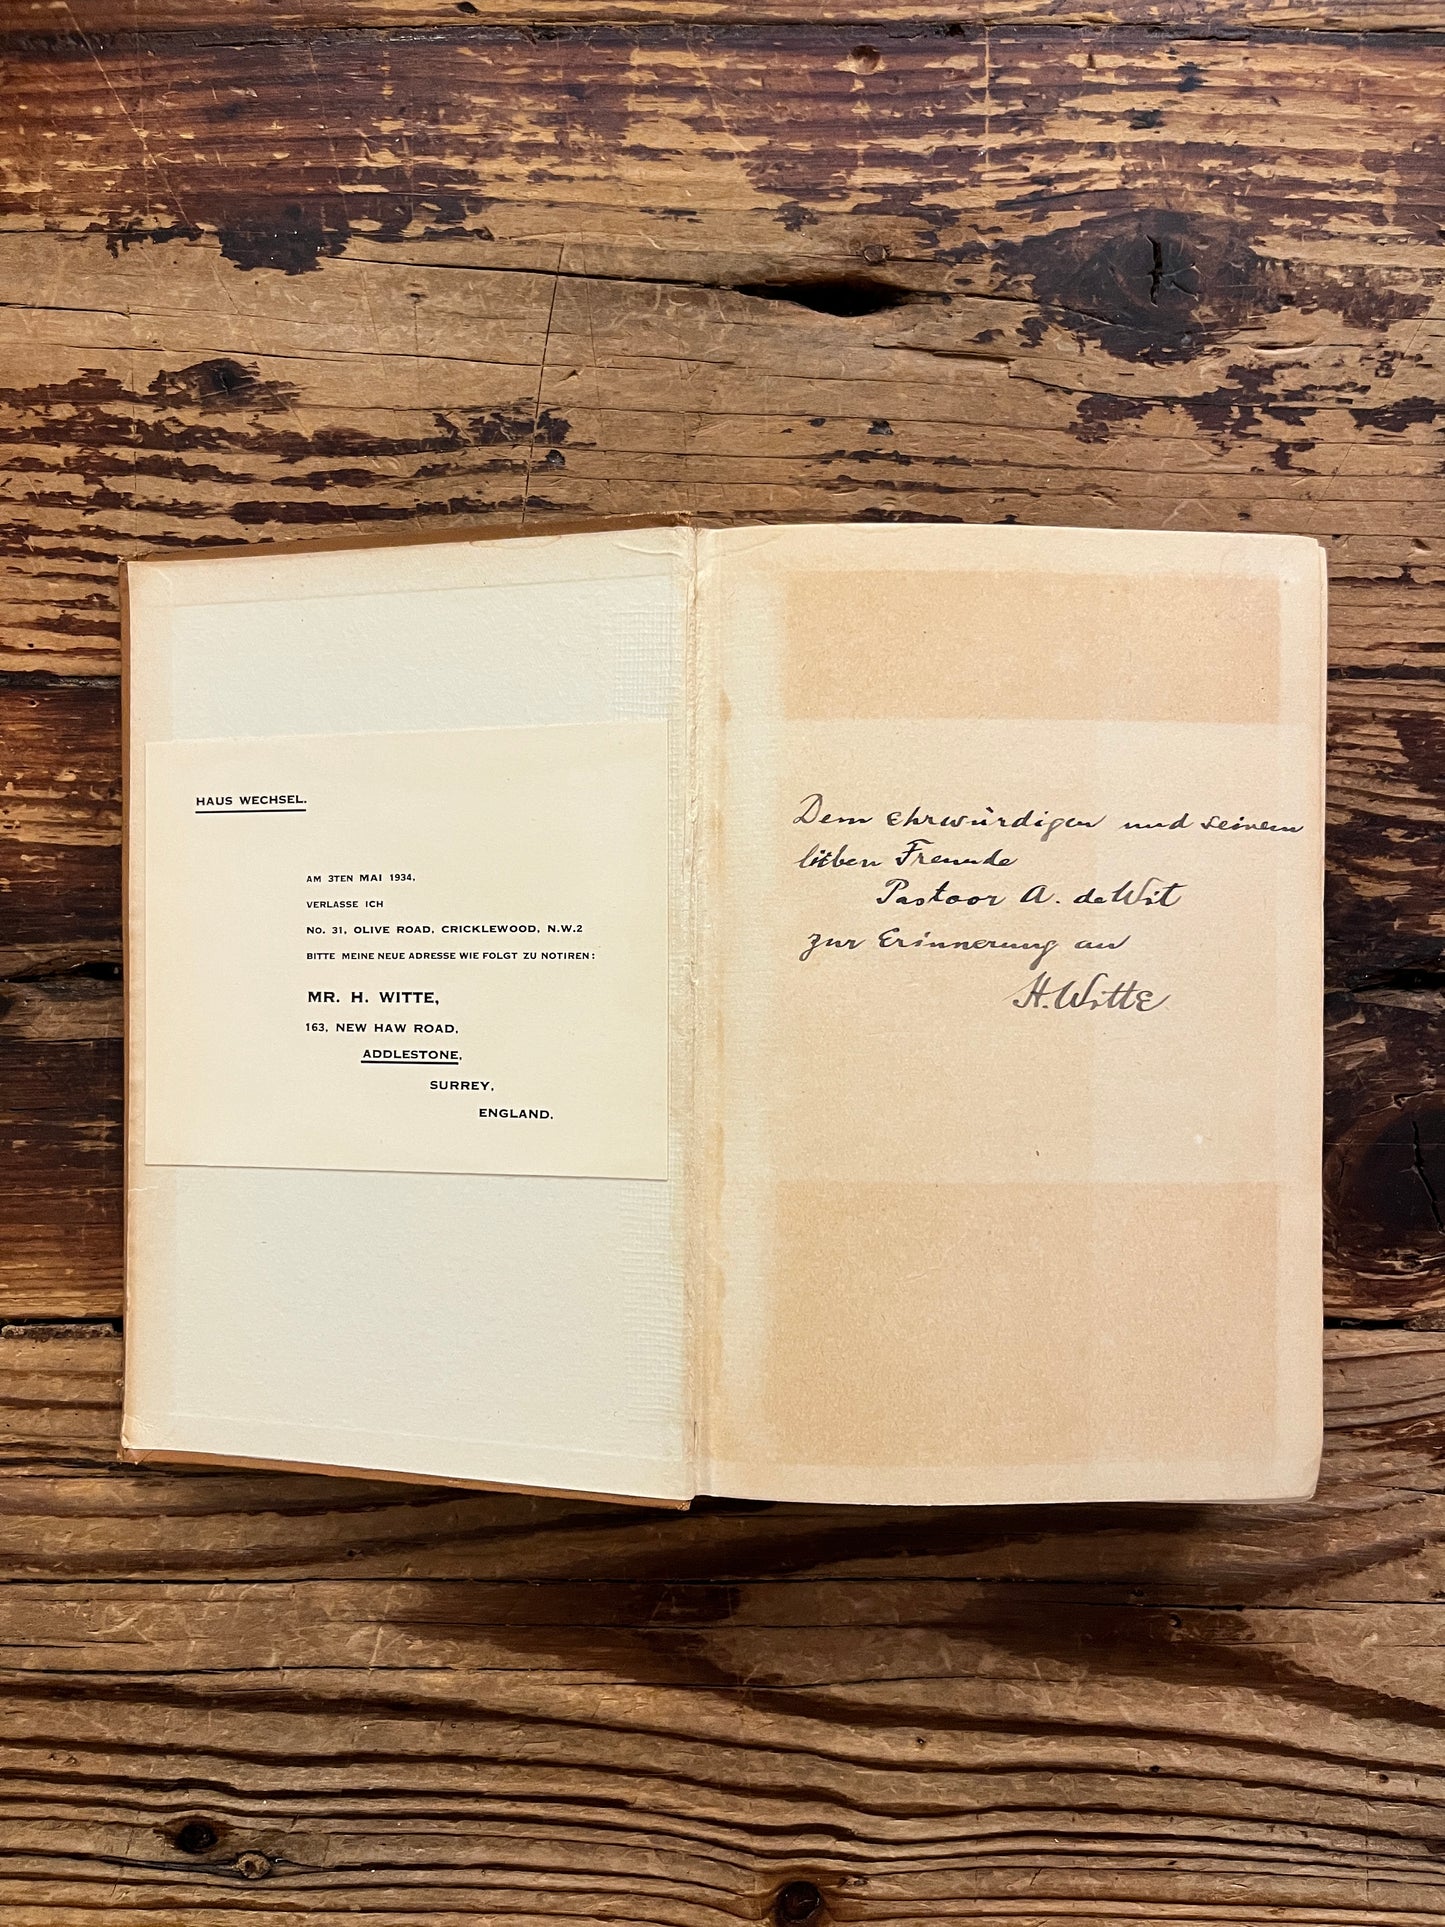 HAUS WECHSEL.
AM 3TEN MAI 1934,
VERLASSE ICH
No. 31, OLIVE ROAD, CRICKLEWOOD, N.W.2
BITTE MEINE NEUE ADRESSE WIE FOLGT ZU NOTIREN:
MR. H. WITTE,
163, NEW HAW ROAD,
ADDLESTONE,
SURREY,
ENGLAND.
Dem ehrwürdigen und seinem
lieben Freunde
Pastoor A. de Wit
zur Erinnerung an
H. Witte